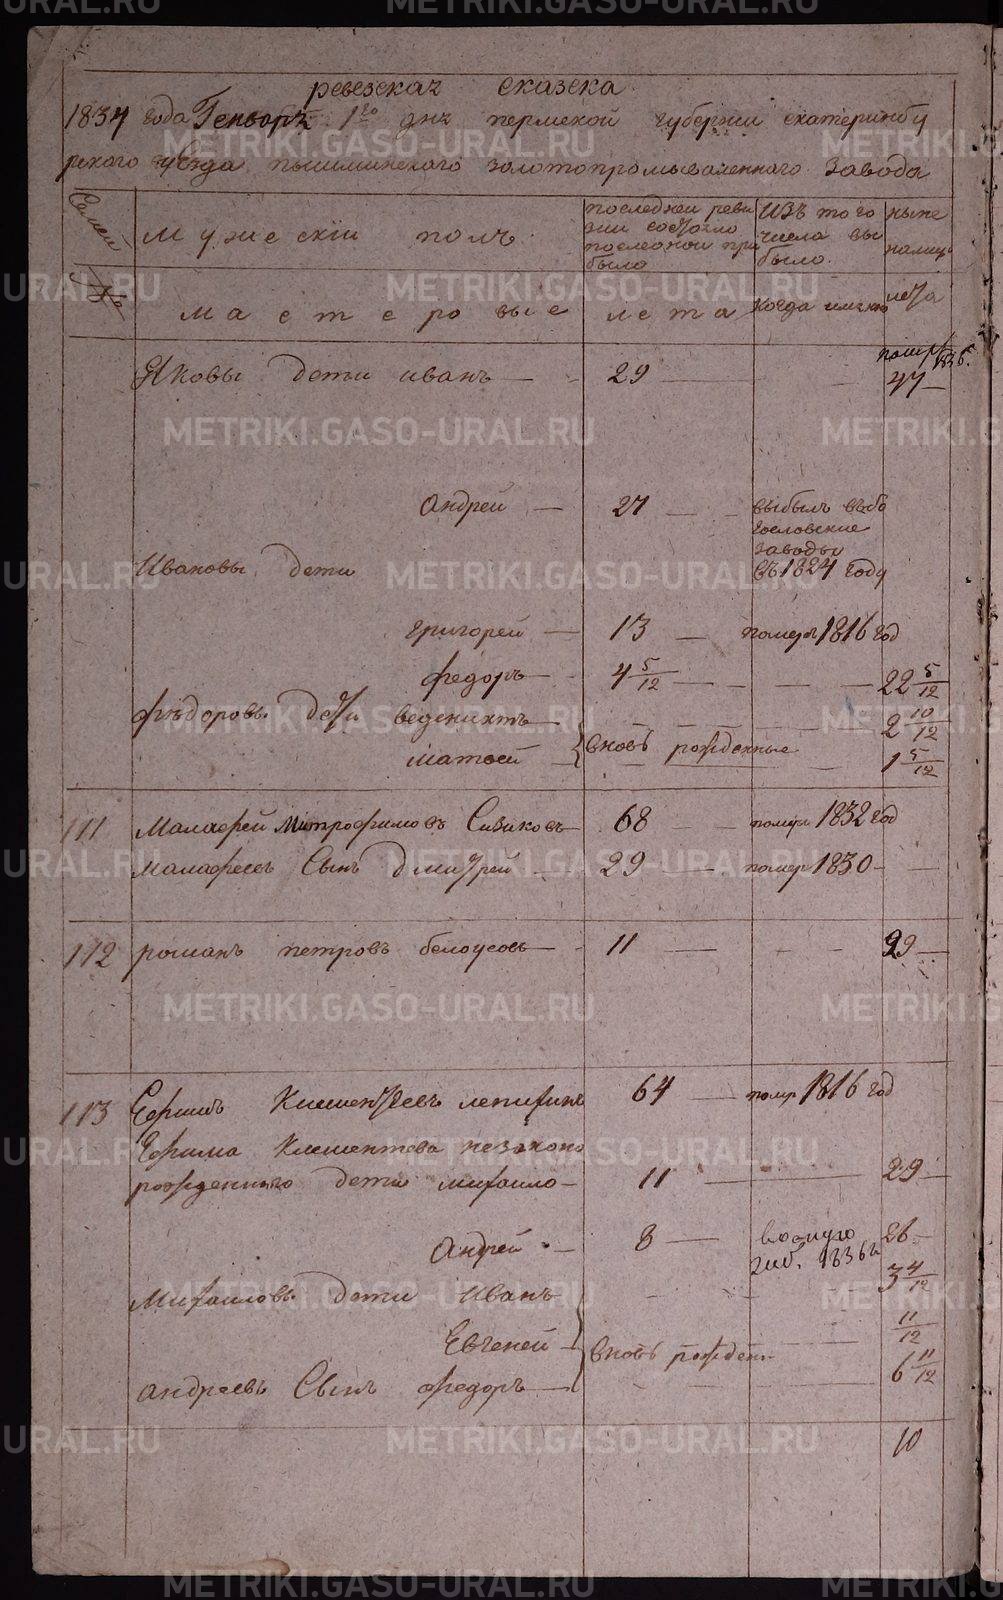 ревезская сказска
1834 года Генворя 1го дня пермской губернии екатеринбу
ргского уезда пышминскаго золотопромываленнаго завода
Семей
№
мужескiй полъ
последней реви
зии состояло
последной при
было
изъ того
числа вы
было
ныне
налиц
мастеровые
лета
когда имянно
лета
Яковы дети иванъ — 29 — помръ 1836. 47 —
Андрей — 27 — выбылъ въбо
гословские
заводы
въ 1824 году
Ивановы дети
григорей — 13 — померъ 1816 год
федоръ — 4 5/12 — 22 5/12
фёдоровы дети веденихтъ — 2 10/12
матвей — вновь рожденные — 1 5/12
111 Малафей Митрофановъ Сизиковъ 68 — померъ 1832 год
малафеевъ Сынъ дмитрей 29 — померъ 1830 —
112 романъ петровъ белоусовъ — 11 — 29 —
113 Ефимъ Климентьевъ лепихинъ 64 — помр 1816 год
Ефима Клементьева незаконо
рожденнаго дети михаило — 11 — 29 —
Андрей — 8 — 1836 26 —
Михаиловы дети Иванъ 3 4/12
Евгеней — вновь рожден 11/12
андреевъ Сынъ федоръ — 6 11/12
10
METRIKI.GASO-URAL.RU